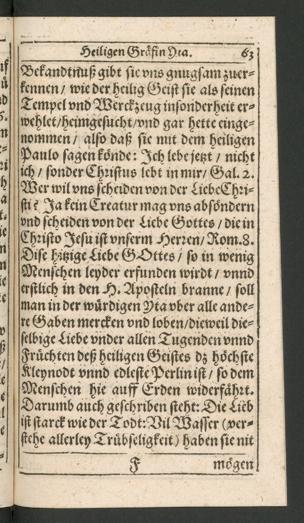 Heiligen Gräfin Yta. 63
Bekandtnuß gibt sie vns gnugsam zuer-
kennen / wie der heilig Geist sie als seinen
Tempel vnd Werckzeug insonderheit er-
wehlet / heimgesucht / vnd gar hette einge-
nommen / also daß sie mit dem heiligen
Paulo sagen könde: Ich lebe jetzt / nicht
ich / sonder Christus lebt in mir / Gal. 2.
Wer wil vns scheiden von der Liebe Chri-
sti? Ja kein Creatur mag vns absöndern
vnd scheiden von der Liebe Gottes / die in
Christo Jesu ist vnserm Herren / Rom. 8.
Dise hitzige Liebe GOttes / so in wenig
Menschen leyder erfunden wirdt / vnnd
erstlich in den H. Aposteln branne / soll
man in der würdigen Yta vber alle ande-
re Gaben mercken vnd loben / dieweil die-
selbige Liebe vnder allen Tugenden vnnd
Früchten deß heiligen Geistes dz höchste
Kleynodt vnnd edleste Perlin ist / so dem
Menschen hie auff Erden widerfährt.
Darumb auch geschriben steht: Die Lieb
ist starck wie der Todt: Vil Wasser (ver-
stehe allerley Trübseligkeit) haben sie nit
F mögen